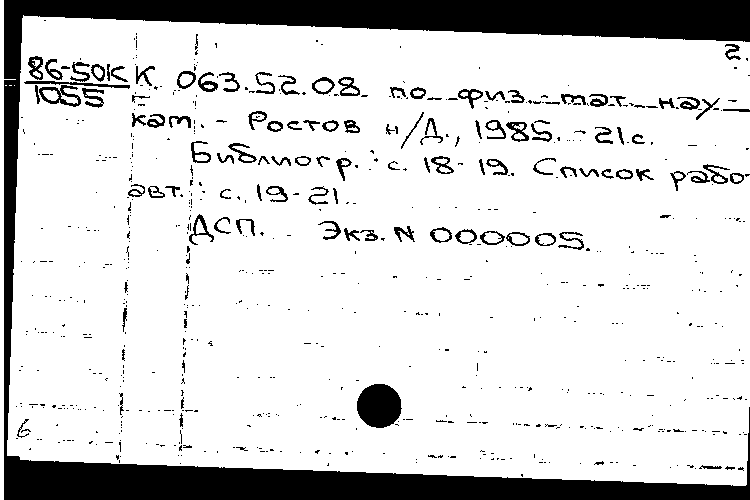 2.
86-50К К 063.52.08 по физ.-мат. нау-
1055
кам. - Ростов н/Д., 1985. - 21 с.
Библиогр.: с. 18-19. Список рабо
авт.: с. 19-21.
ДСП. Экз. N 000005.
6